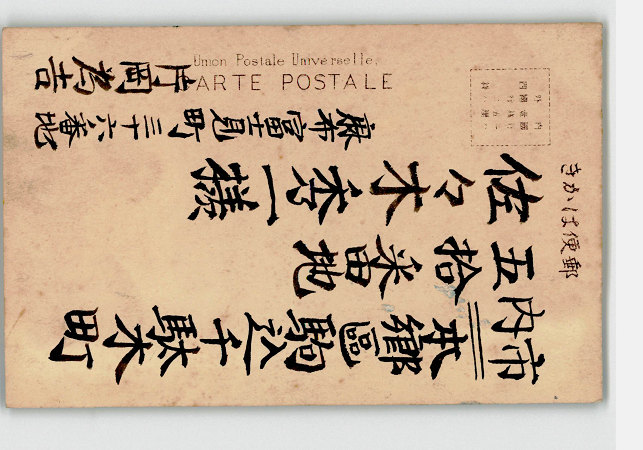 Union Postale Universelle.
CARTE POSTALE
郵便はかき
市内本郷區駒込千駄木町
五拾番地
佐々木秀一様
麻布富士見町三十六番地
片岡為吉